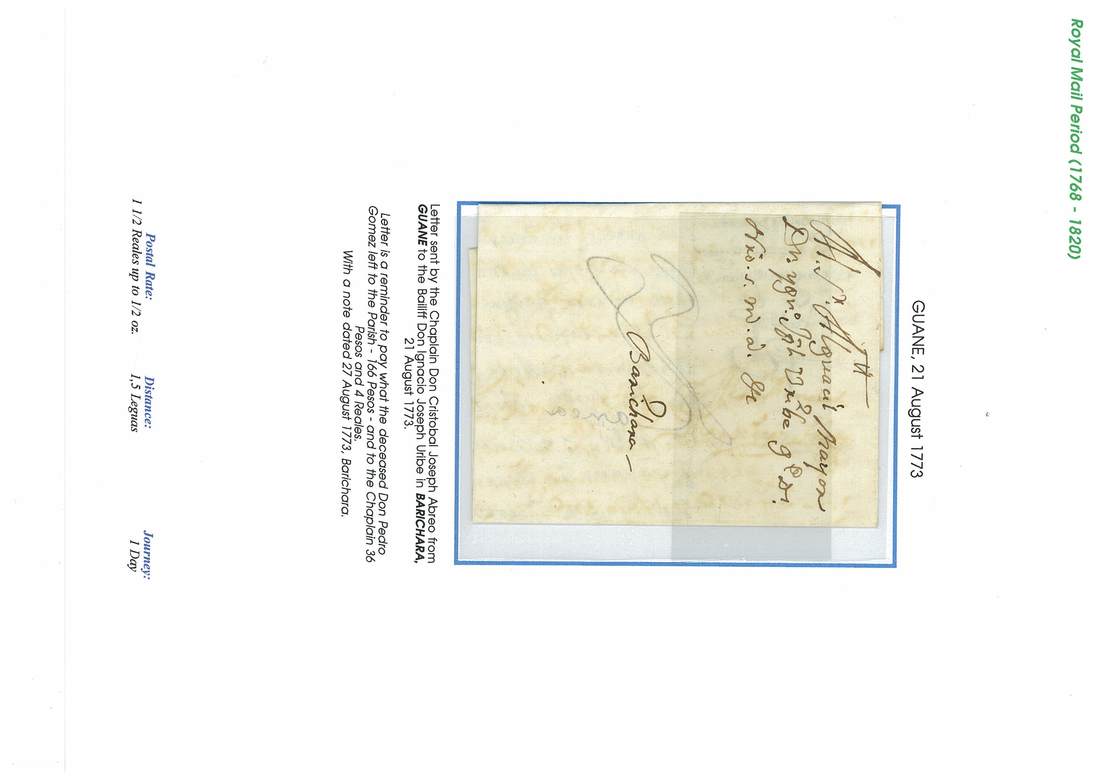 Royal Mail Period (1768 - 1820)
GUANE, 21 August 1773
Alguacil Mayor
Uribe
Barichara
Letter sent by the Chaplain Don Cristobal Joseph Abreo from
GUANE to the Bailiff Don Ignacio Joseph Uribe in BARICHARA,
21 August 1773.
Letter is a reminder to pay what the deceased Don Pedro
Gomez left to the Parish - 166 Pesos - and to the Chaplain 36
Pesos and 4 Reales.
With a note dated 27 August 1773, Barichara.
Postal Rate:
1 1/2 Reales up to 1/2 oz.
Distance:
1,5 Leguas
Journey:
1 Day